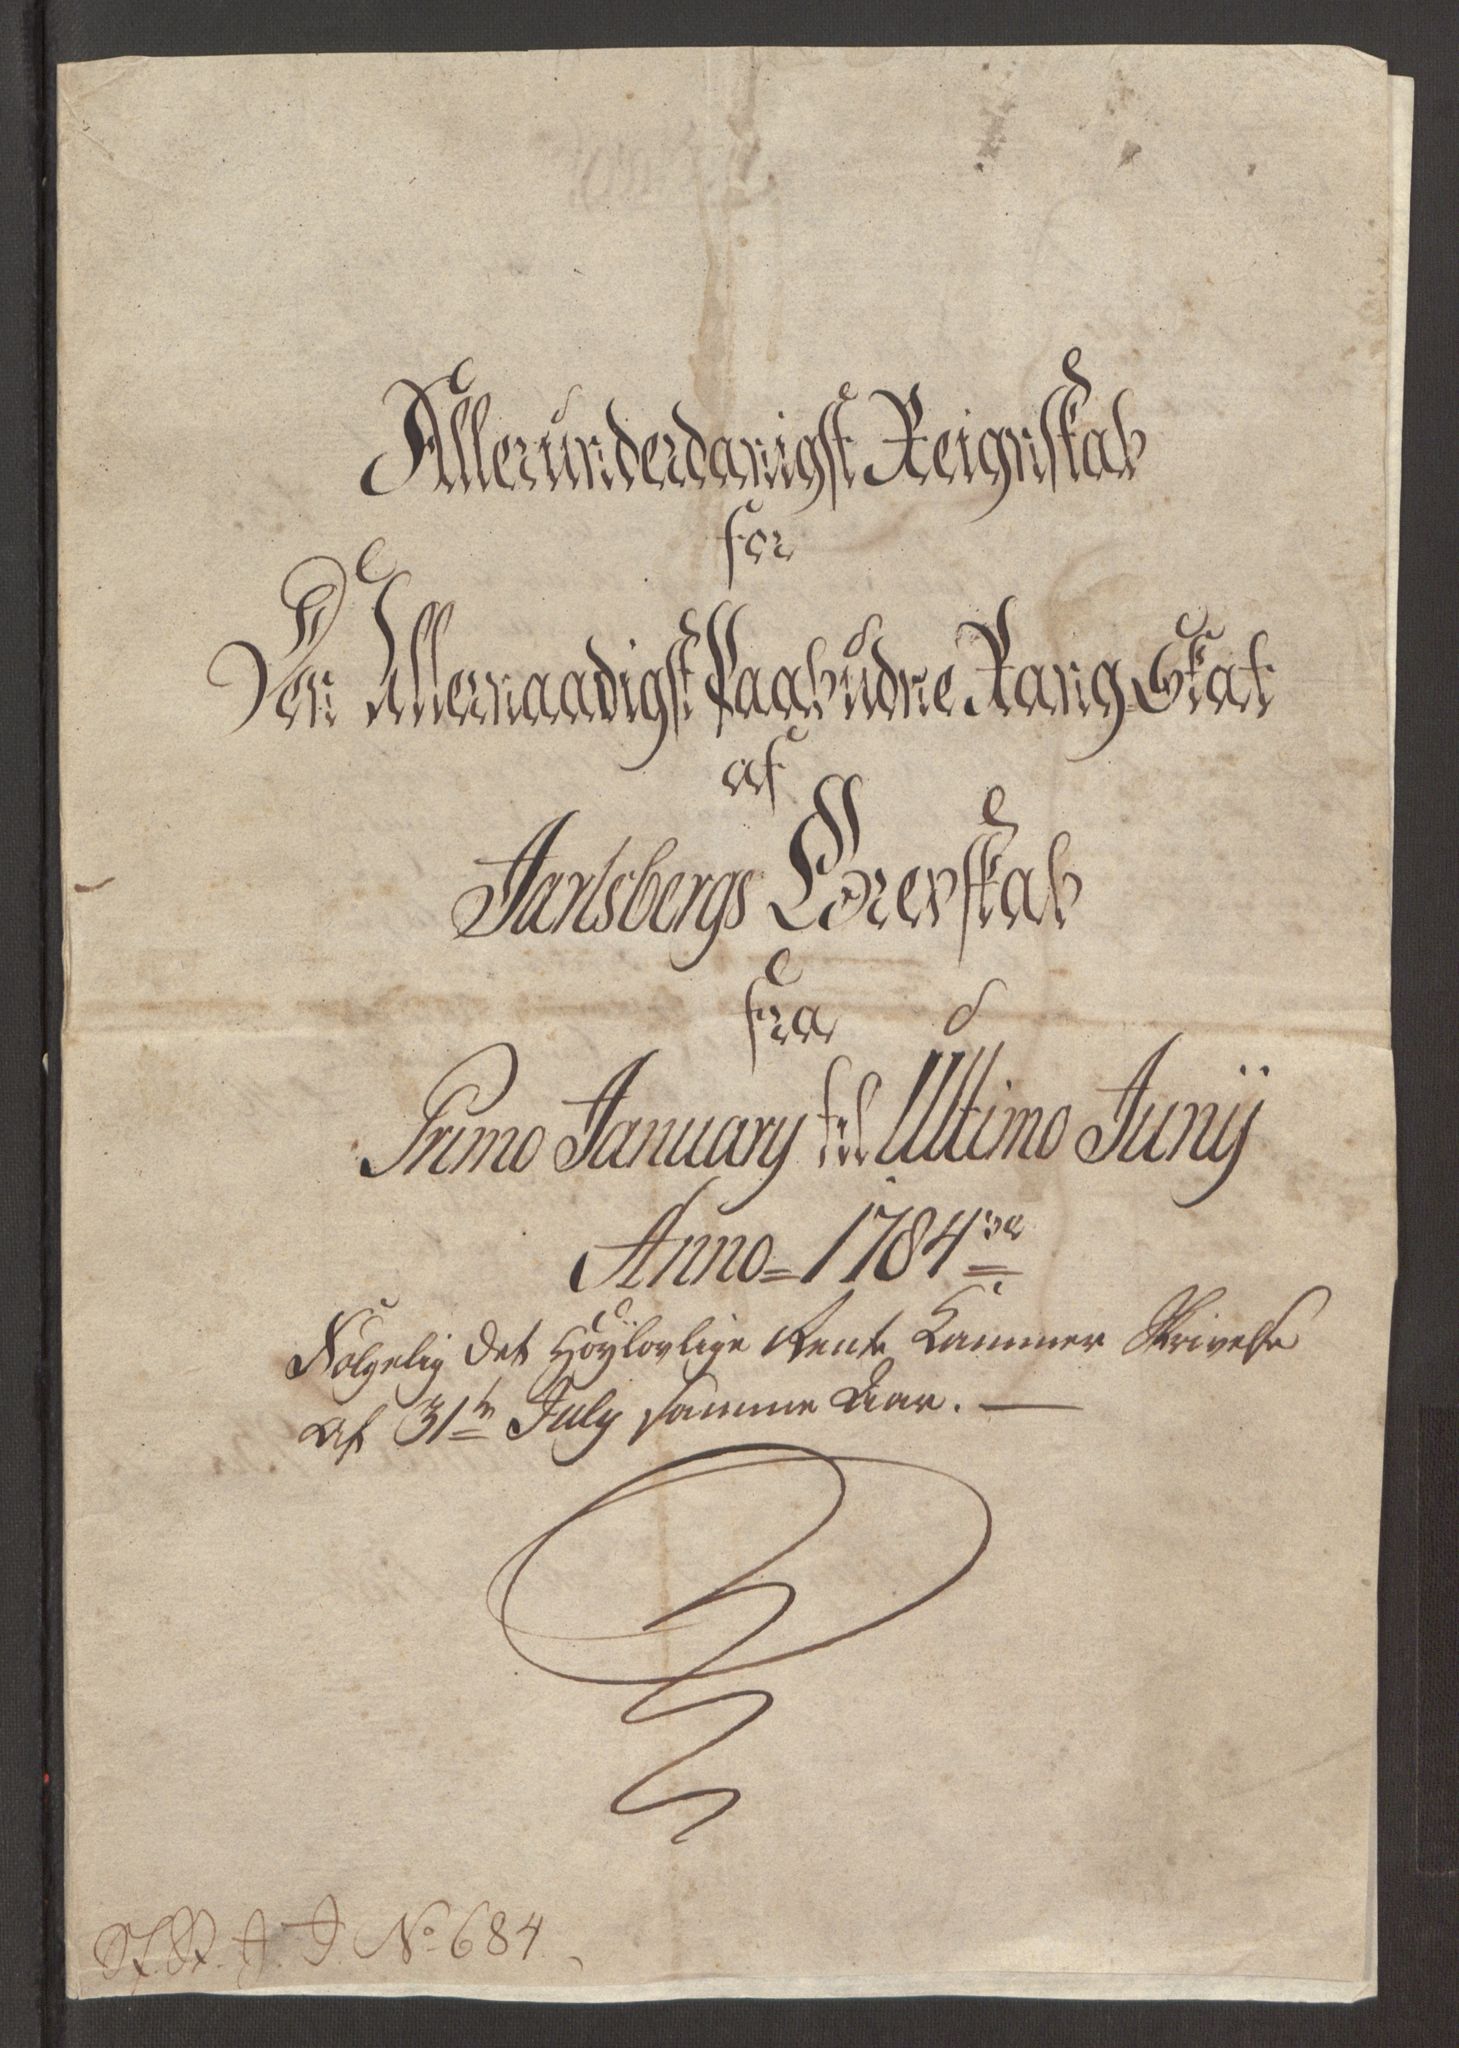 Allerunderdanigst Reignskab
for
Den Allernaadigst Paabudne Rang Skat
af
Jarlsbergs Grevskab
fra
Primo January til Ultimo Junij
Anno = 1784
Følgelig det Høylovlige Rente Kammer Skrivelse
af 31te July samme Aar. —
No 684